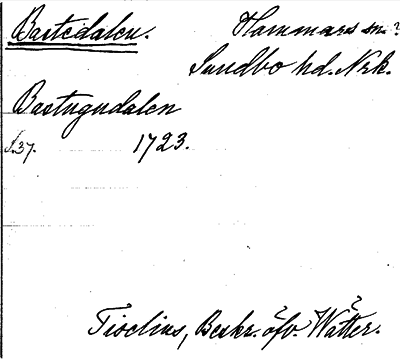 Bastedalen. Hammars sn.?
Sundbo hd. Nrk.
Bastugudalen
s. 37. 1723.
Tiselius, Beskr. öfv. Wätter.